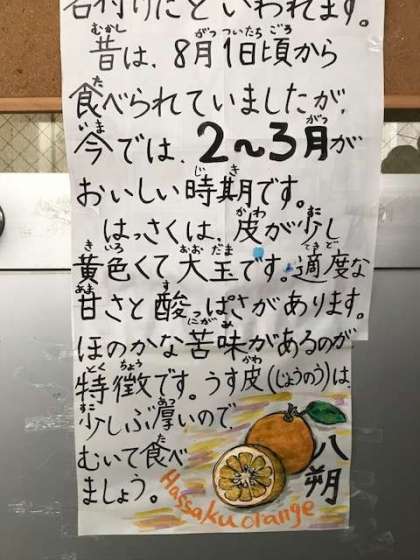 名付けたといわれます。
昔は、8月1日頃から
食べられていましたが、
今では、2〜3月が
おいしい時期です。
はっさくは、皮が少し
黄色くて大玉です。適度な
甘さと酸っぱさがあります。
ほのかな苦味があるのが
特徴です。うす皮(じょうのう)は、
少しぶ厚いので、
むいて食べ
ましょう。
八朔
Hassaku orange